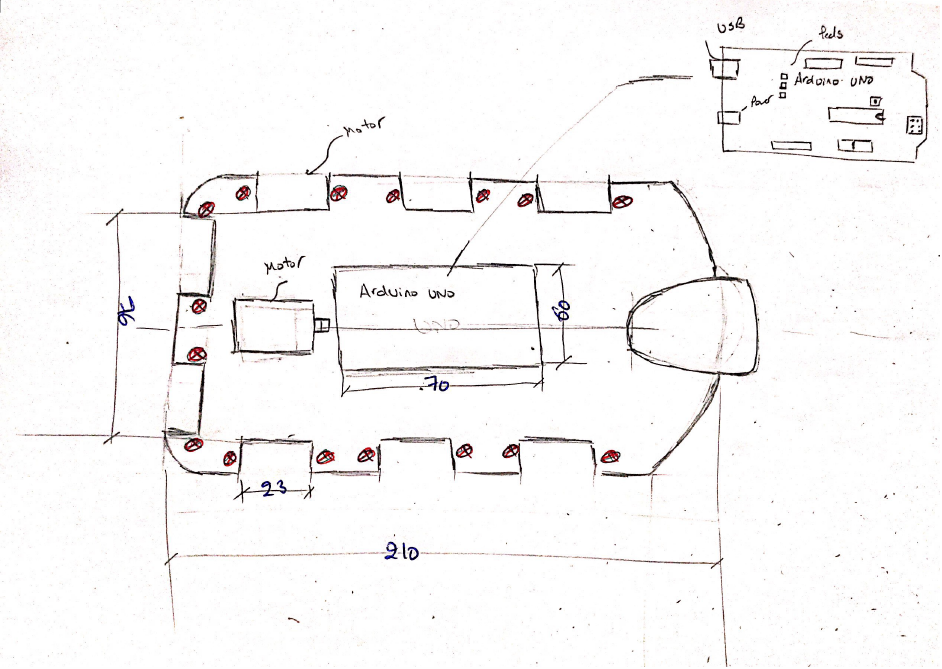 USB
Leds
Arduino UNO
Power
motor
motor
Arduino UNO
UNO
96
60
70
23
210